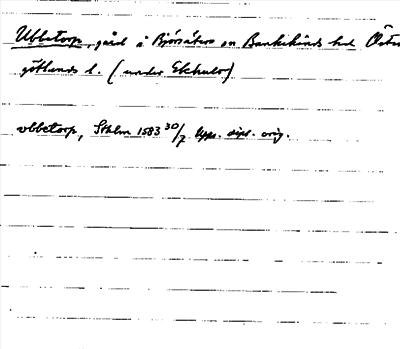 Ubbetorp, gård i Björsäters sn Bankekinds hd Öster
götlands l. (under Ekhult)
vbbetorp, Sthlm 1583 30/7 Upps. dipl. orig.